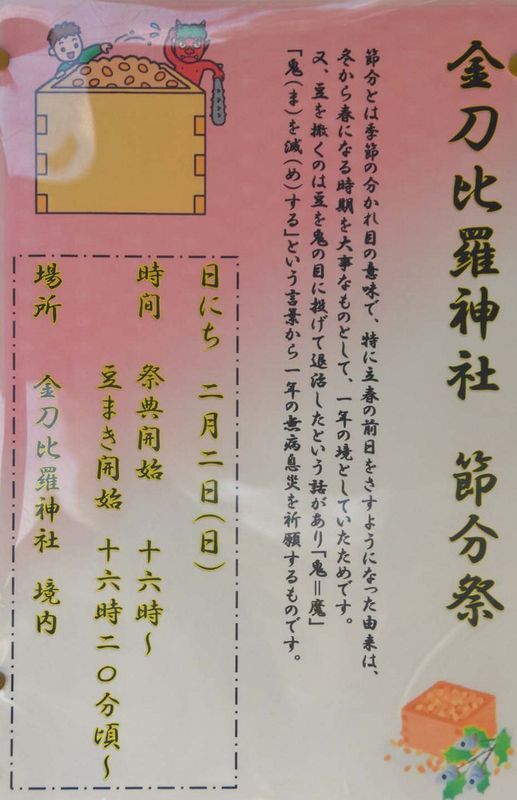 金刀比羅神社　節分祭
節分とは季節の分かれ目の意味で、特に立春の前日をさすようになった由来は、
冬から春になる時期を大事なものとして、一年の境としていたためです。
又、豆を撒くのは豆を鬼の目に投げて退治したという話があり「鬼＝魔」
「鬼(ま)を滅(め)する」という言葉から一年の無病息災を祈願するものです。
日にち　二月二日(日)
時间　祭典開始　十六時～
豆まき開始　十六時二〇分頃～
場所　金刀比羅神社　境内